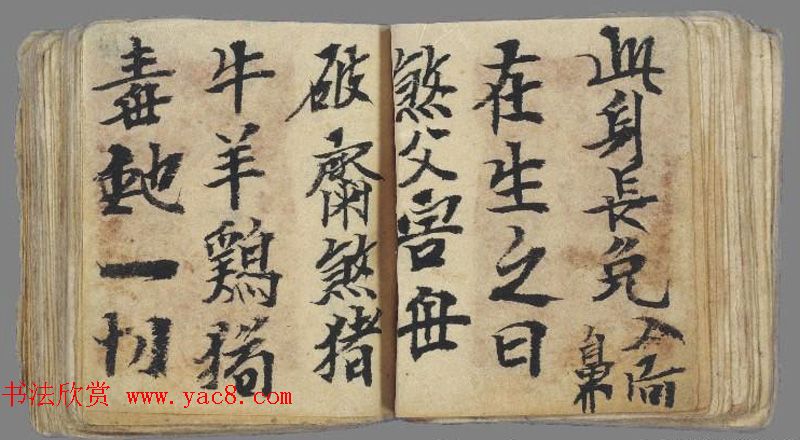 此身長免入
在生之日
煞父害毋
破齋煞猪
牛羊鶏狗
毒虵一切
书法欣赏 www.yac8.com